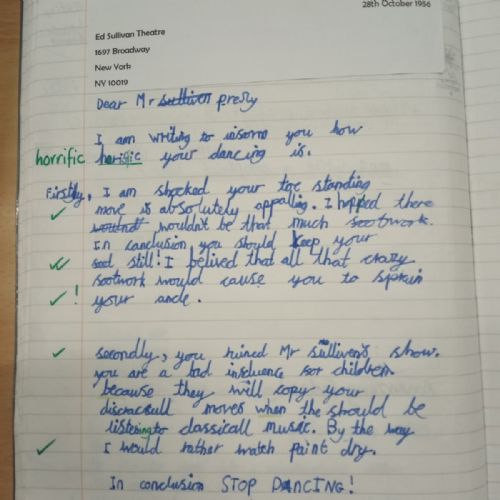 28th October 1956
Ed Sullivan Theatre
1697 Broadway
New York
NY 10019
Dear Mr sullivan presly
I am writing to insorm you how
horrific horific your dancing is.
Firstly, I am shocked your toe standing
move is absolutely appalling. I hopped there
wouldnt wouldn't be that much sootwork.
In conclusion you should keep your
seet still! I belived that all that crazy
sootwork would cause you to sprain
your ancle.
secondly, you ruined Mr sullivan's show.
you are a bad insluence sor children
because they will copy your
disgracesull moves when the should be
listening to classicall music. By the way
I would rather watch paint dry.
In conclusion STOP DANCING!